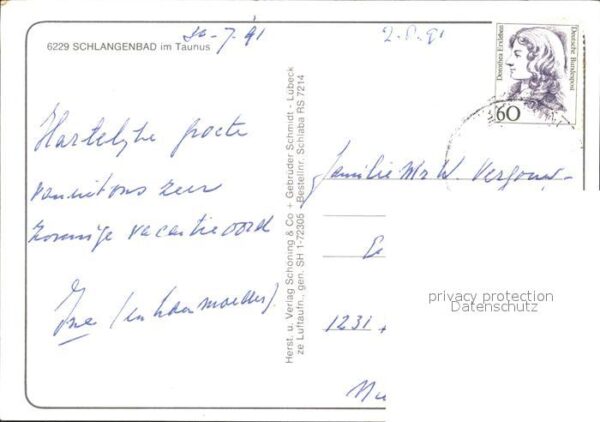 6229 SCHLANGENBAD im Taunus
30-7-91
2-8-91
Dorothea Erxleben
Deutsche Bundespost
60
Hartelijke groete
vanuit ons zeer
zonnige vacantieoord
Ine (en haar moeder).
Herst. u. Verlag Schöning & Co + Gebrüder Schmidt - Lübeck
ze Luftaufn., gen. SH 1-72305 Bestellnr. Schlaba RS 7214
Familie Mr W. Vergouw
1231
privacy protection
Datenschutz